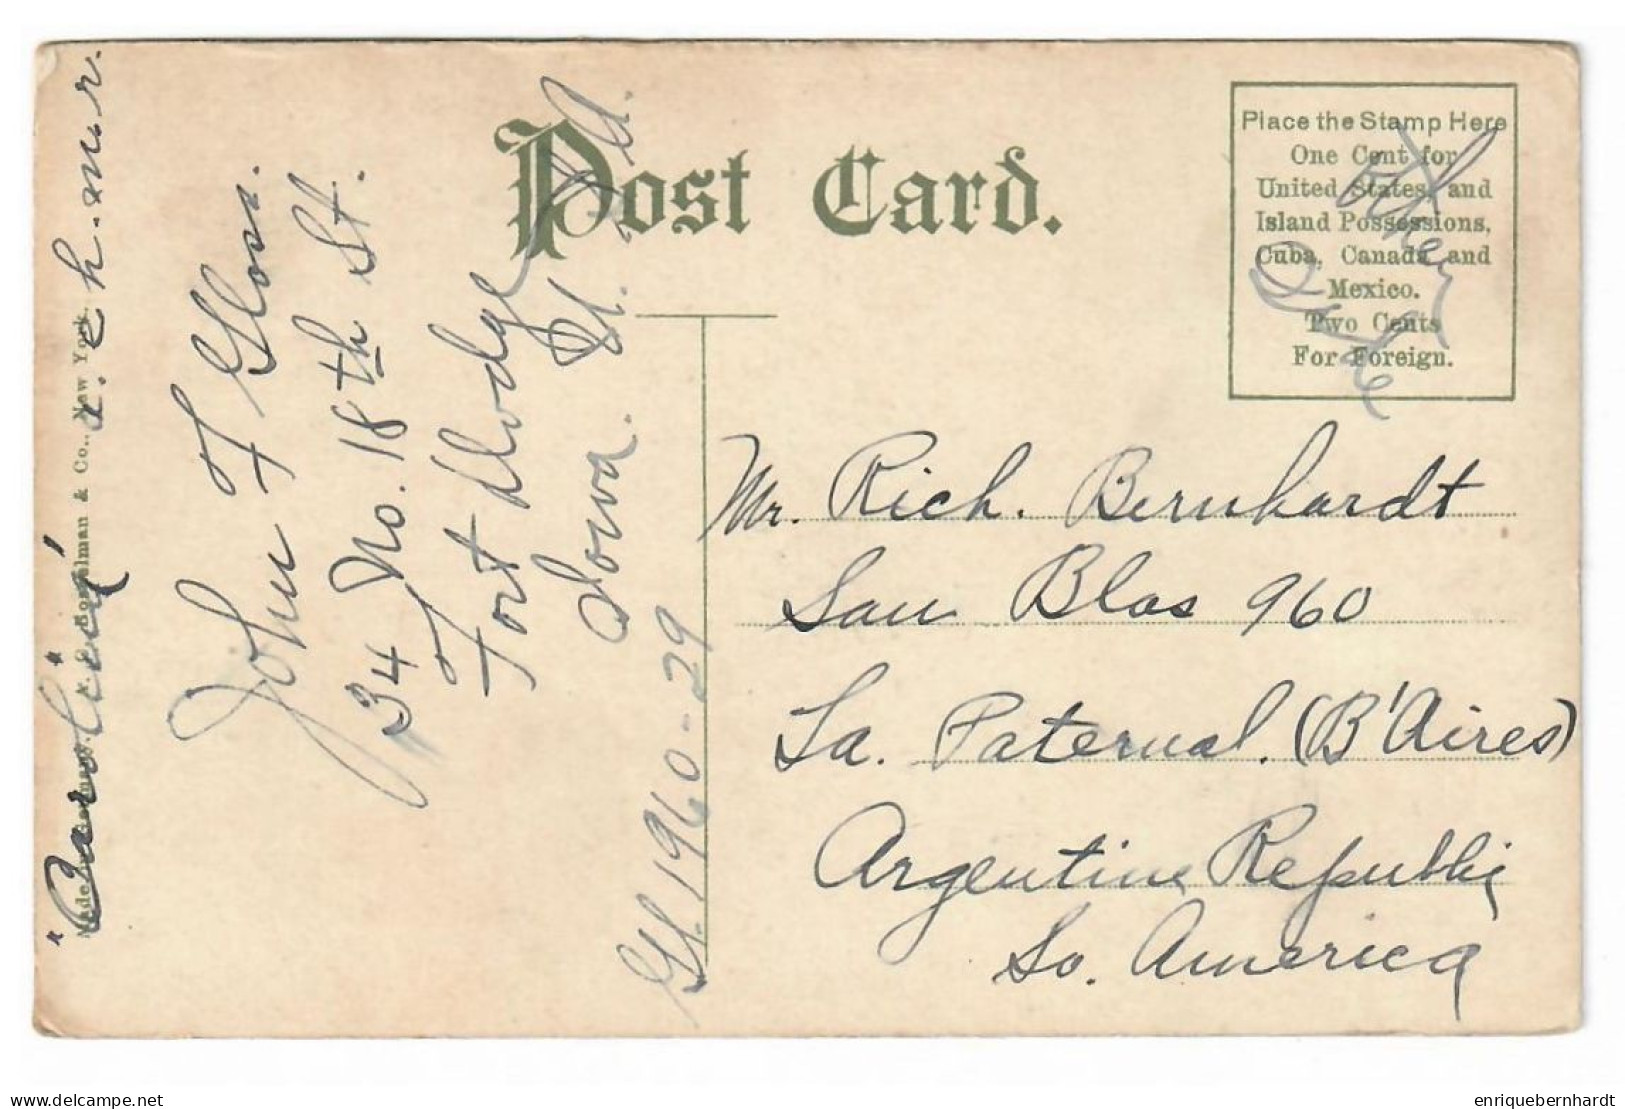 Post Card.
Place the Stamp Here
One Cent for
United States and
Island Possessions,
Cuba, Canada and
Mexico.
Two Cents
For Foreign.
other
side
Mr. Rich. Bernhardt
San Blas 960
La Paternal. (B'Aires)
Argentine Republic
So. America
John F Gloss.
34 No. 18th St.
Fort Dodge
Iowa.
Gl. 1960-29
& Co., New York.
www.delcampe.net
enriquebernhardt